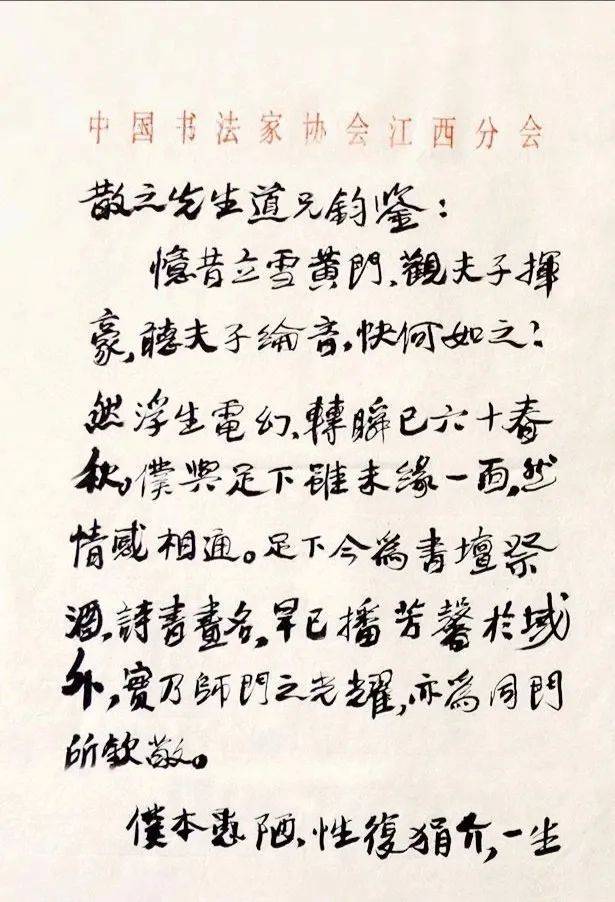 中国书法家协会江西分会
散之先生道兄鈞鑒：
憶昔立雪黄門、觀夫子揮
豪，聽夫子綸音，快何如之；
然浮生電幻、轉瞬已六十春
秋。僕與足下雖未緣一面，然
情感相通。足下今爲書壇祭
酒，詩書畫名，早已播芳馨於域
外，實乃師門之光耀，亦爲同門
所欽敬。
僕本愚陋、性復狷介，一生